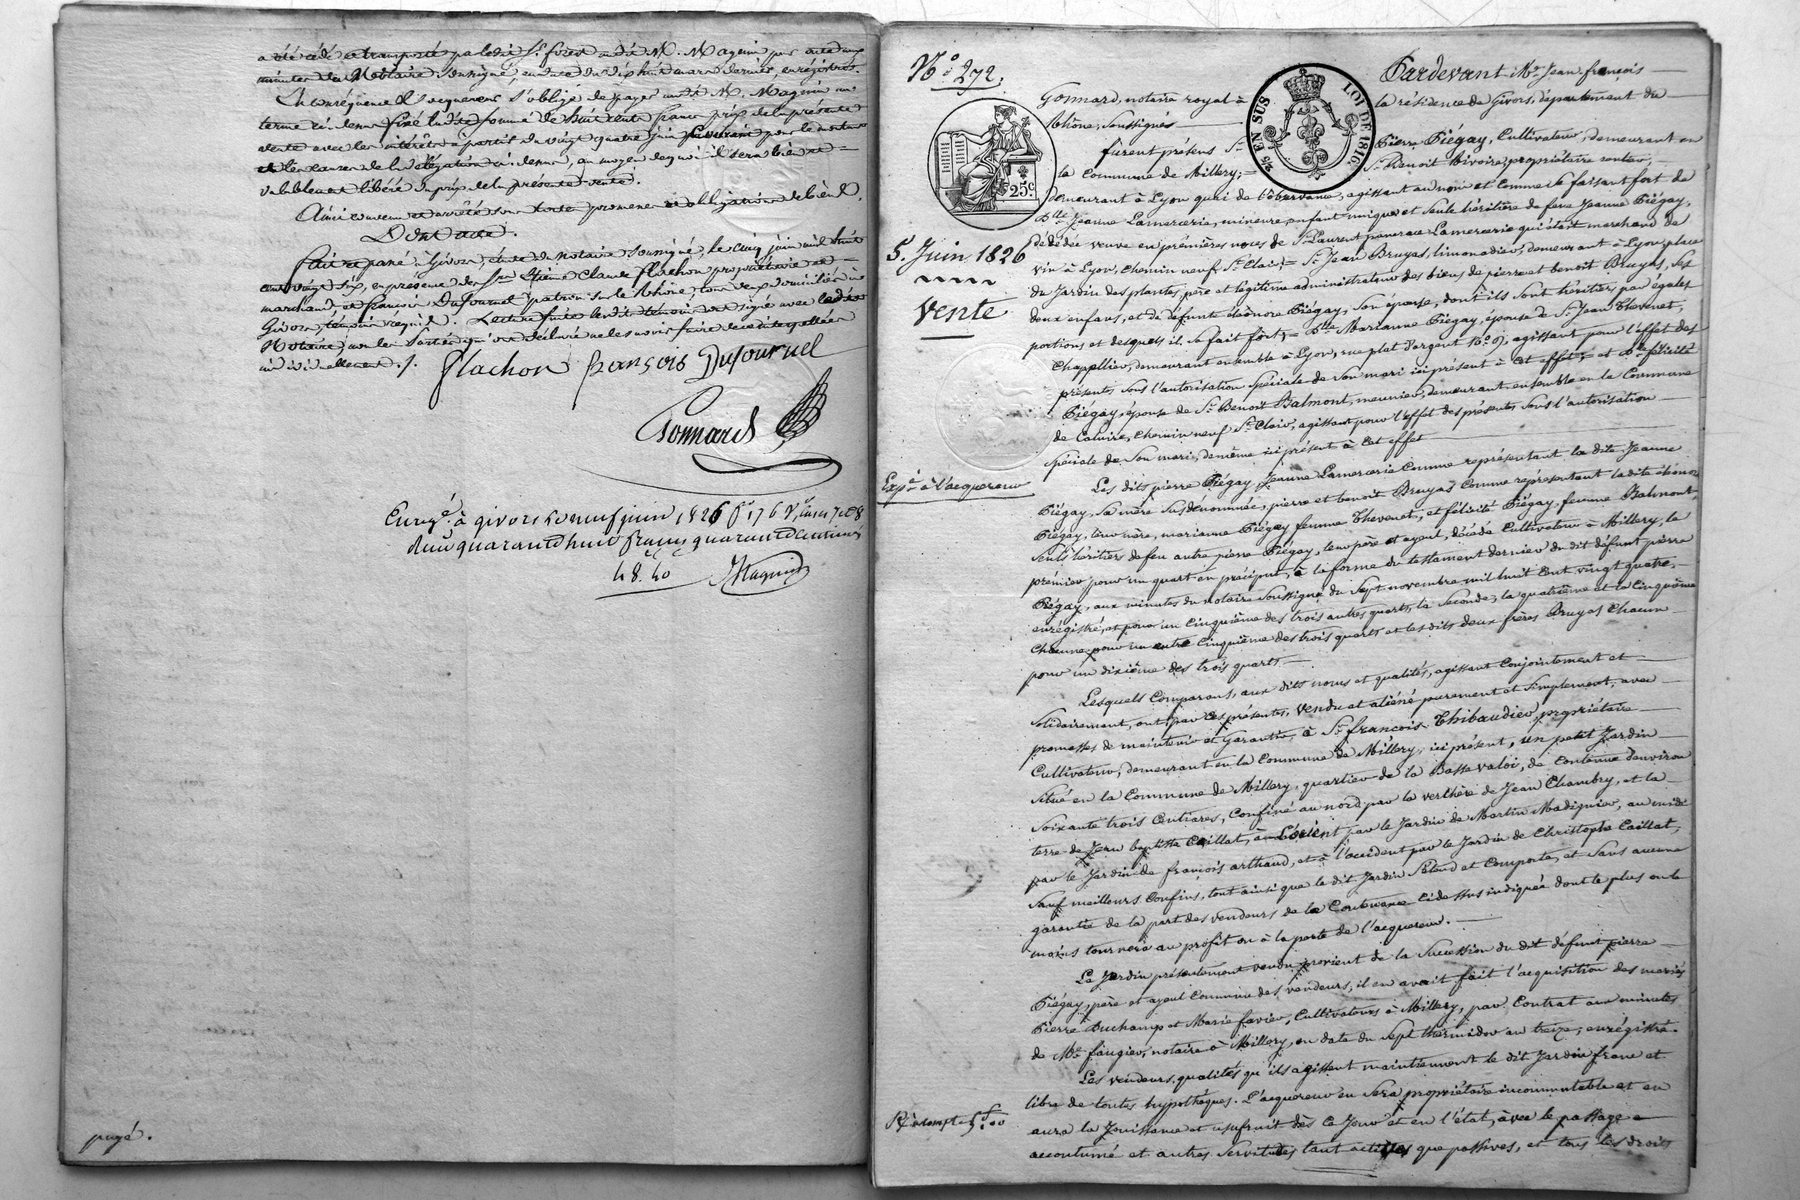 a été cédé et transporté par le dit Sr. forest au dit M. Magnin par acte aux
minutes du Notaire soussigné, en date du dix huit mars dernier, enregistré.
En conséquence l'acquereur s'oblige de payer au dit M. Magnin au
terme ci dessus fixé la dite somme de huit cents francs prix de la présente
vente avec les intérêts à partir du vingt quatre juin
et les causes de la délégation ci dessus, au moyen de quoi il sera bien et
valablement libéré du prix de la présente vente.
Ainsi convenu et arrêté sous toutes promesses et obligations de biens.
Dont acte.
fait et passé à Givors, étude du notaire soussigné, le cinq juin mil huit
cent vingt six, en présence de Sr. Claude flachon propriétaire et
marchand, et françois Dufournel patron sur le Rhône, tous deux domiciliés à
Givors, témoins requis. Lecture faite les dits témoins ont signé avec le dit
Notaire, non les parties qui ont déclaré ne le savoir faire de ce interpellées
individuellement ./.
flachon françois Dufournel
Gonnard
Enregé. à givors le neuf juin 1826 fo 176 Vo, cases 7 et 8
reçu quarante huit francs quarante centimes
48.40 Magnin
pagé.
No. 272.
Pardevant Mr. Jean françois
Gonnard, notaire royal à la résidence de Givors, département du
Rhône, Soussigné
25 C
25 EN SUS LOI DE 1816
furent présens Sr. Pierre Piégay, Cultivateur, demeurant en
la Commune de Millery; = Sr. Benoit Bivoire, propriétaire rentier,
demeurant à Lyon quai de l'observance, agissant au nom et comme se faisant fort de
Dlle. Jeanne Lamercerie, mineure, enfant unique et seule héritière de feue Jeanne Piégay,
5. Juin 1826
décédée veuve en premières noces de Sr. Laurent pancrace Lamercerie qui était marchand de
vin à Lyon, chemin neuf St. Clair; = Sr. Jean Bruyas, limonadier, demeurant à Lyon place
du Jardin des plantes, père et légitime administrateur des biens de pierre et benoit Bruyas, ses
Vente
deux enfans, et de défunte éléonore Piégay, son épouse, dont ils sont héritiers par égales
portions et desquels il se fait fort; = Dlle. Marianne Piégay, épouse de Sr. Jean Thevenet,
Chappellier, demeurant ensemble à Lyon, rue plat d'argent No. 9, agissant pour l'effet des
présentes sous l'autorisation spéciale de son mari ici présent à cet effet; = et De. félicité
Piégay, épouse de Sr. Benoit Balmont, meunier, demeurant ensemble en la Commune
de Caluire, chemin neuf St. Clair, agissant pour l'effet des présentes sous l'autorisation
spéciale de son mari, de même ici présent à cet effet
Expe. à l'acquereur
Les dits pierre Piégay, Jeanne Lamercerie Comme représentant la dite Jeanne
Piégay, sa mère susdénommée, pierre et benoit Bruyas Comme représentant la dite éléonore
Piégay, leur mère, marianne Piégay femme Thevenet, et félicité Piégay, femme Balmont,
seuls héritiers de feu autre pierre Piégay, leur père et ayeul, décédé Cultivateur à Millery, le
premier pour un quart en préciput, à la forme du testament dernier du dit défunt pierre
Piégay, aux minutes du notaire soussigné du sept novembre mil huit Cent vingt quatre,
enregistré, et pour un cinquième des trois autres quarts, la seconde, la quatrième et la cinquième
Chacune pour un autre cinquième des trois quarts et les dits deux frères Bruyas Chacun
pour un dixième des trois quarts
Lesquels Comparans, aux dits noms et qualités, agissant conjointement et
solidairement, ont, par ces présentes, vendu et aliéné purement et simplement, avec
promesses de maintenir et Garantir, à Sr. francois Thibaudier, propriétaire
Cultivateur, demeurant en la Commune de Millery, ici présent, un petit Jardin
situé en la Commune de Millery, quartier de la Basse valoi, de Contenue d'environ
soixante trois Centiares, Confiné au nord par la verchère de Jean Chambry, et la
terre de Jean baptiste Caillat, à L'orient par le Jardin de Martin Madignier, au midi
par le Jardin de francois arthaud, et à l'occident par le Jardin de Christophe Caillat,
sauf meilleurs Confins, tout ainsi que le dit Jardin s'étend et Comporte, et sans aucune
garantie de la part des vendeurs de la Contenance ci dessus indiquée dont le plus ou le
moins tournera au profit ou à la perte de l'acquereur.
Le Jardin présentement vendu provient de la succession du dit défunt pierre
Piégay, père et ayeul Commun des vendeurs, il en avait fait l'acquisition des mariés
Pierre Duchamp et Marie favier, Cultivateurs à Millery, par Contrat aux minutes
de Me. faugier, notaire à Millery, en date du sept thermidor an treize, enregistré.
Les vendeurs, qualités qu'ils agissent maintiennent le dit Jardin franc et
libre de toutes hypothèques. L'acquereur en sera propriétaire incommutable et en
aura la Jouissance et usufruit dès ce Jour et en l'état, avec le passage
accoutumé et autres servitudes tant actives que passives, et tous les droits